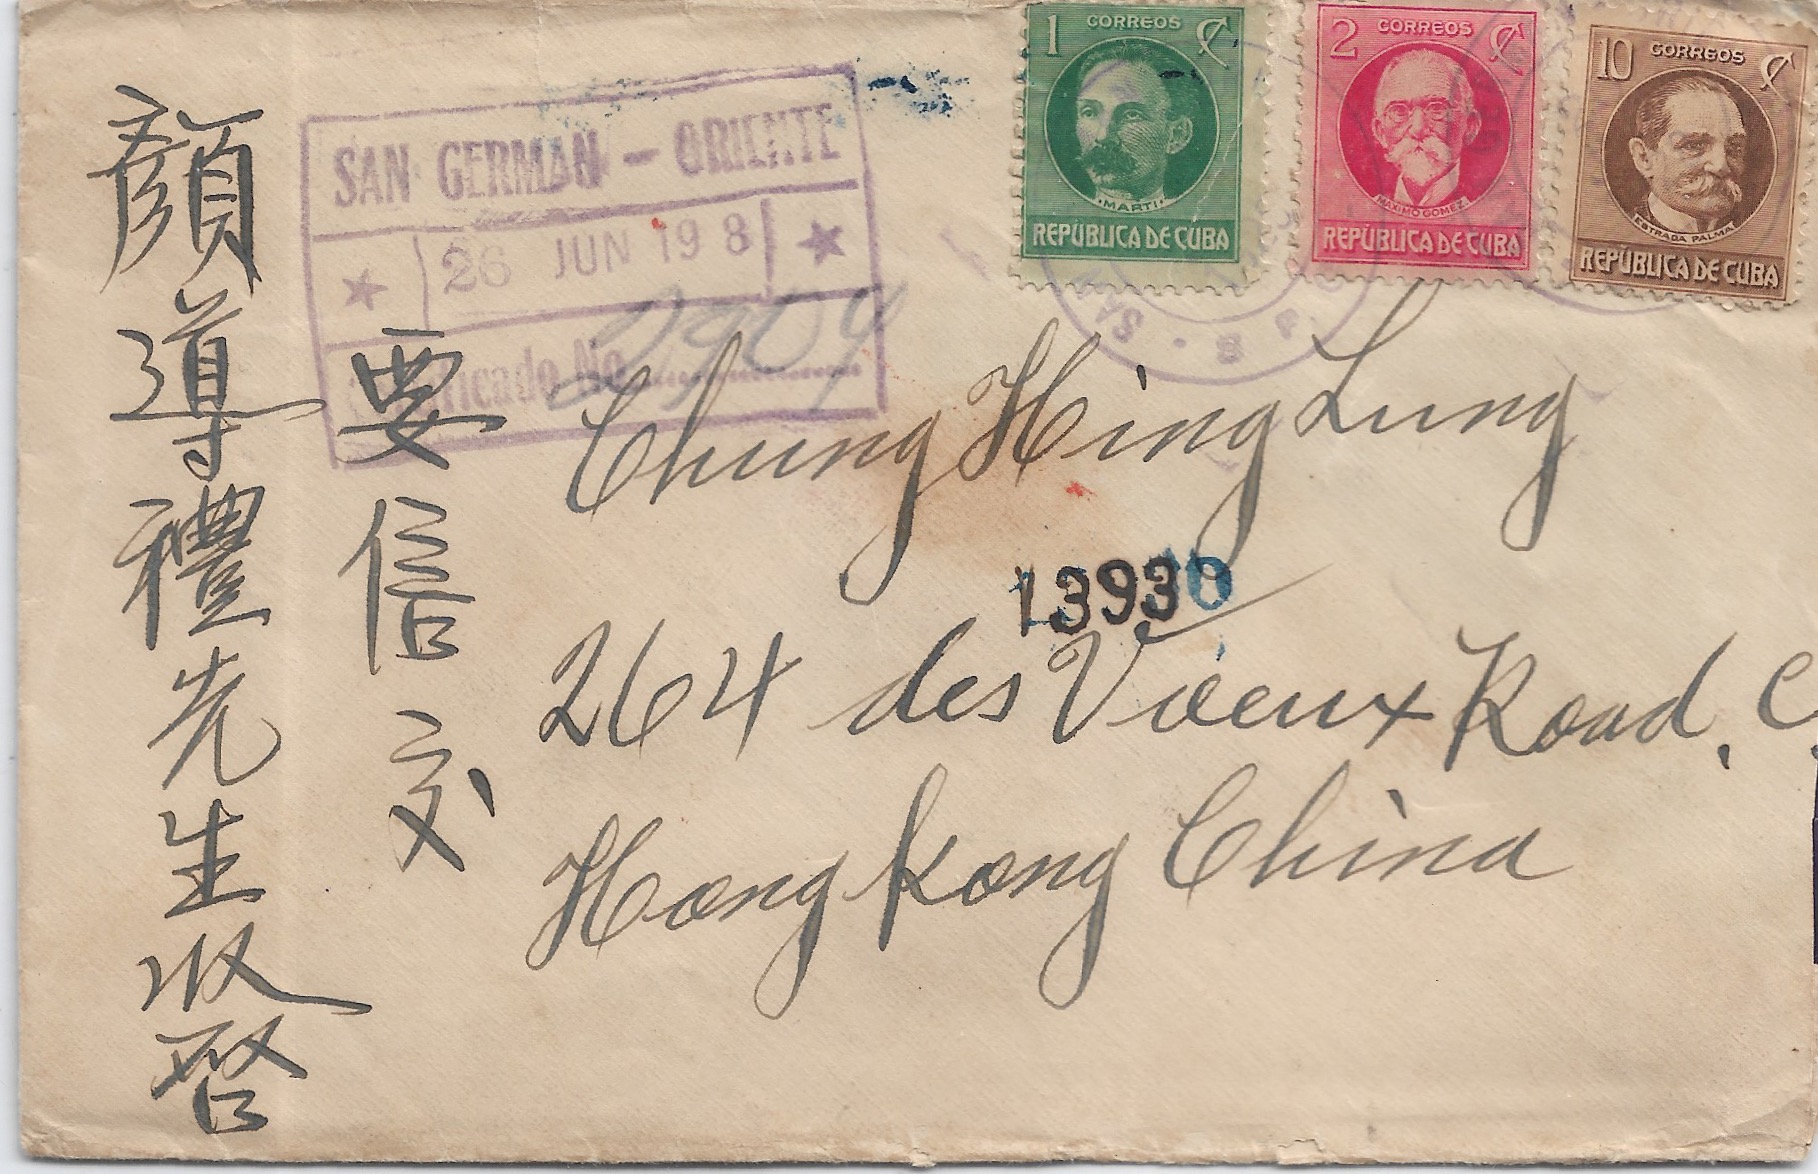 1 CORREOS ₵
MARTI
REPÚBLICA DE CUBA
2 CORREOS ₵
MAXIMO GOMEZ
REPÚBLICA DE CUBA
10 CORREOS ₵
ESTRADA PALMA
REPÚBLICA DE CUBA
SAN GERMAN - ORIENTE
26 JUN 19 8
No
2909
SAN
Chung Hing Lung
13930
264 des Vaeux Road, C.
Hong Kong China
要信交
顏導禮先生收啓